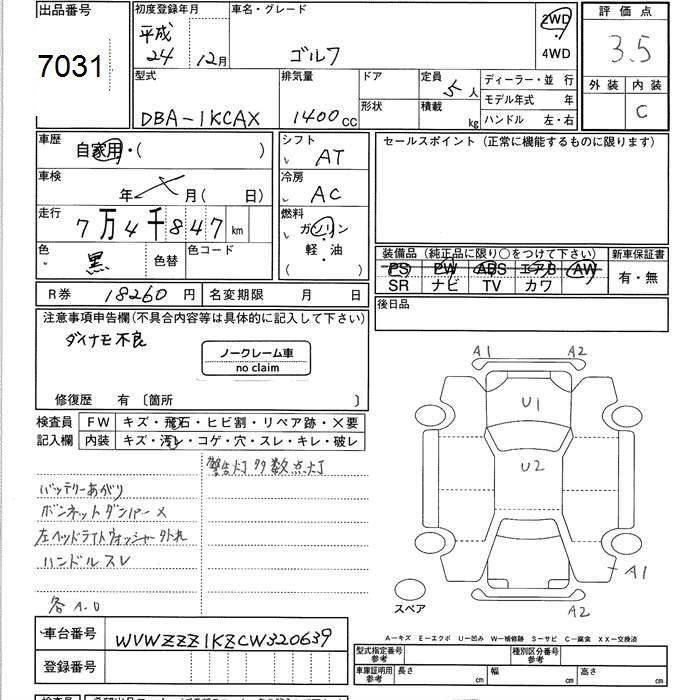 出品番号
7031
初度登録年月
平成
24 12月
車名・グレード
ゴルフ
2WD
4WD
評価点
3.5
外装 内装
C
型式
DBA-1KCAX
排気量
1400cc
ドア
形状
定員
5人
積載
kg
ディーラー・並 行
モデル年式 年
ハンドル 左・右
車歴
自家用・( )
車検
年 × 月( 日)
走行
7万4千847km
色
黒
色替
色コード
シフト
AT
冷房
AC
燃料
ガソリン
軽・油
( )
セールスポイント (正常に機能するものに限ります)
装備品 (純正品に限り○をつけて下さい)
PS PW ABS エアB AW
SR ナビ TV カワ
新車保証書
有・無
R券 18260円
名変期限 月 日
後日品
注意事項申告欄(不具合内容等は具体的に記入して下さい)
ダイナモ不良
ノークレーム車
no claim
修復歴 有 〔箇所 〕
検査員
記入欄
FW キズ・飛石・ヒビ割・リペア跡・×要
内装 キズ・汚レ・コゲ・穴・スレ・キレ・破レ
警告灯多数点灯
バッテリーあがり
ボンネットダンパー×
左ヘッドライトウォッシャー外れ
ハンドルスレ
各A.U
A1 A2
U1
U2
A1
スペア
A2
A-キズ E-エクボ U-凹み W-補修跡 S-サビ C-腐食 XX-交換済
車台番号
WVWZZZ1KZCW320639
登録番号
型式指定番号
参考
種別区分番号
参考
車庫証明用
参考
長さ cm 幅 cm 高さ cm